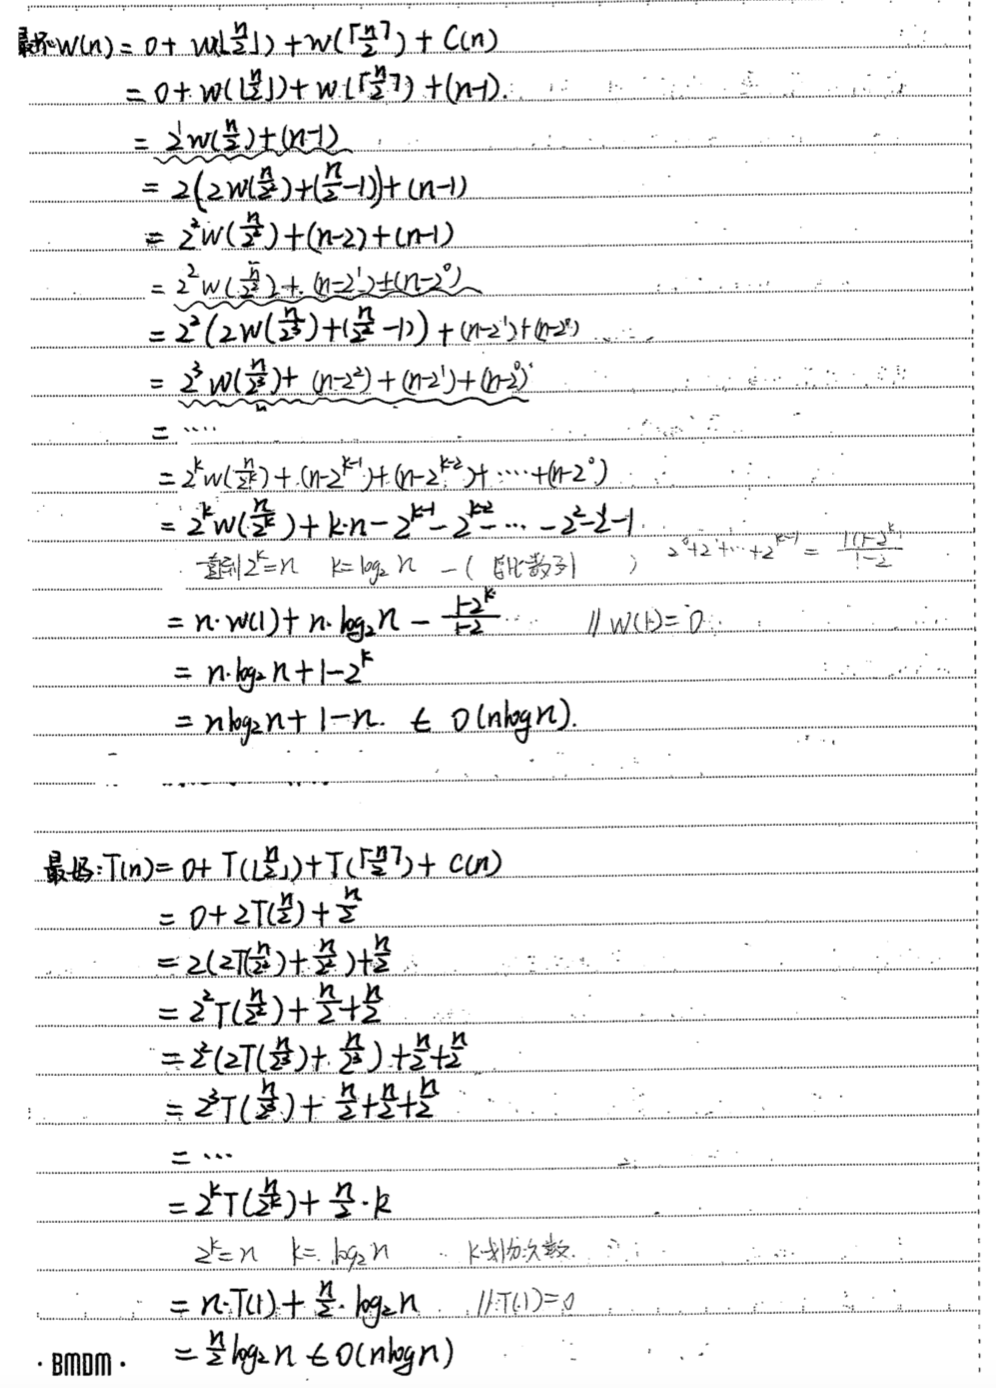 最坏:W(n) = 0 + W(⌊n/2⌋) + W(⌈n/2⌉) + C(n)
= 0 + W(⌊n/2⌋) + W(⌈n/2⌉) + (n-1).
= 2¹W(n/2) + (n-1)
= 2(2W(n/2²) + (n/2 - 1)) + (n-1)
= 2²W(n/2²) + (n-2) + (n-1)
= 2²W(n/2²) + (n-2¹) + (n-2⁰)
= 2²(2W(n/2³) + (n/2² - 1)) + (n-2¹) + (n-2⁰)
= 2³W(n/2³) + (n-2²) + (n-2¹) + (n-2⁰)
= ....
= 2ᵏW(n/2ᵏ) + (n-2ᵏ⁻¹) + (n-2ᵏ⁻²) + ····· + (n-2⁰)
= 2ᵏW(n/2ᵏ) + k·n - 2ᵏ⁻¹ - 2ᵏ⁻² - ··· - 2² - 2¹ - 1
直到2ᵏ=n k=log₂n - (等比数列) 2⁰+2¹+···+2ᵏ⁻¹ = 1(1-2ᵏ)/1-2
= n·W(1) + n·log₂n - 1-2ᵏ/1-2 // W(1)=0
= n·log₂n + 1 - 2ᵏ
= nlog₂n + 1 - n. ∈ O(nlogn).
最好:T(n) = 0 + T(⌊n/2⌋) + T(⌈n/2⌉) + C(n)
= 0 + 2T(n/2) + n/2
= 2(2T(n/2²) + n/2²) + n/2
= 2²T(n/2²) + n/2 + n/2
= 2²(2T(n/2³) + n/2³) + n/2 + n/2
= 2³T(n/2³) + n/2 + n/2 + n/2
= ···
= 2ᵏT(n/2ᵏ) + n/2·k
2ᵏ=n k=log₂n k-划分次数.
= n·T(1) + n/2·log₂n //T(1)=0
= n/2 log₂n ∈ O(nlogn)
· BMDM ·